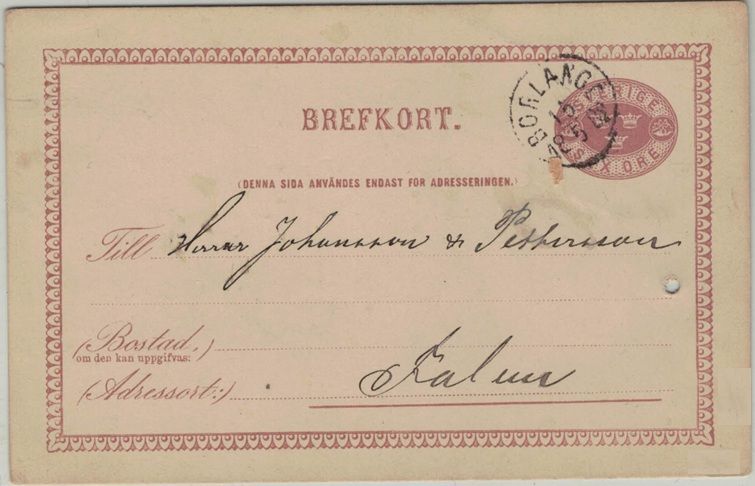 SVERIGE
SEX ÖRE
BORLÄNGE
BREFKORT.
(DENNA SIDA ANVÄNDES ENDAST FÖR ADRESSERINGEN.)
Till Herrar Johansson & Pettersson
(Bostad,)
om den kan uppgifvas:
(Adressort:) Falun